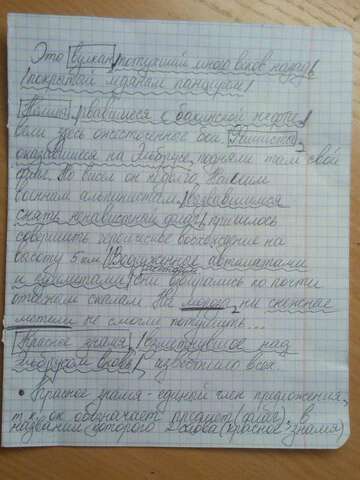 Это вулкан, потухший много веков назад,
покрытый ледяным панцирем.
рвавшиеся к бакинской нефти,
вели здесь ожесточенные бои.
оказавшиеся на Эльбрусе, подняли там свой
флаг. Но висел он недолго. Нашим
военным альпинистам,
снять ненавистный флаг, пришлось
совершить героическое восхождение на
высоту 5 км. Вооруженные автоматами
и они взбирались по почти
отвесным скалам. Ни мороз, ни снежные
метели не смогли потушить...
Красное знамя, взметнувшее над
Эльбрусом вновь, известило всех.
• Красное знамя - единый член предложения,
т.к. ок обозначает предмет (флаг), в
названии которого 2 слова (красное, знамя)